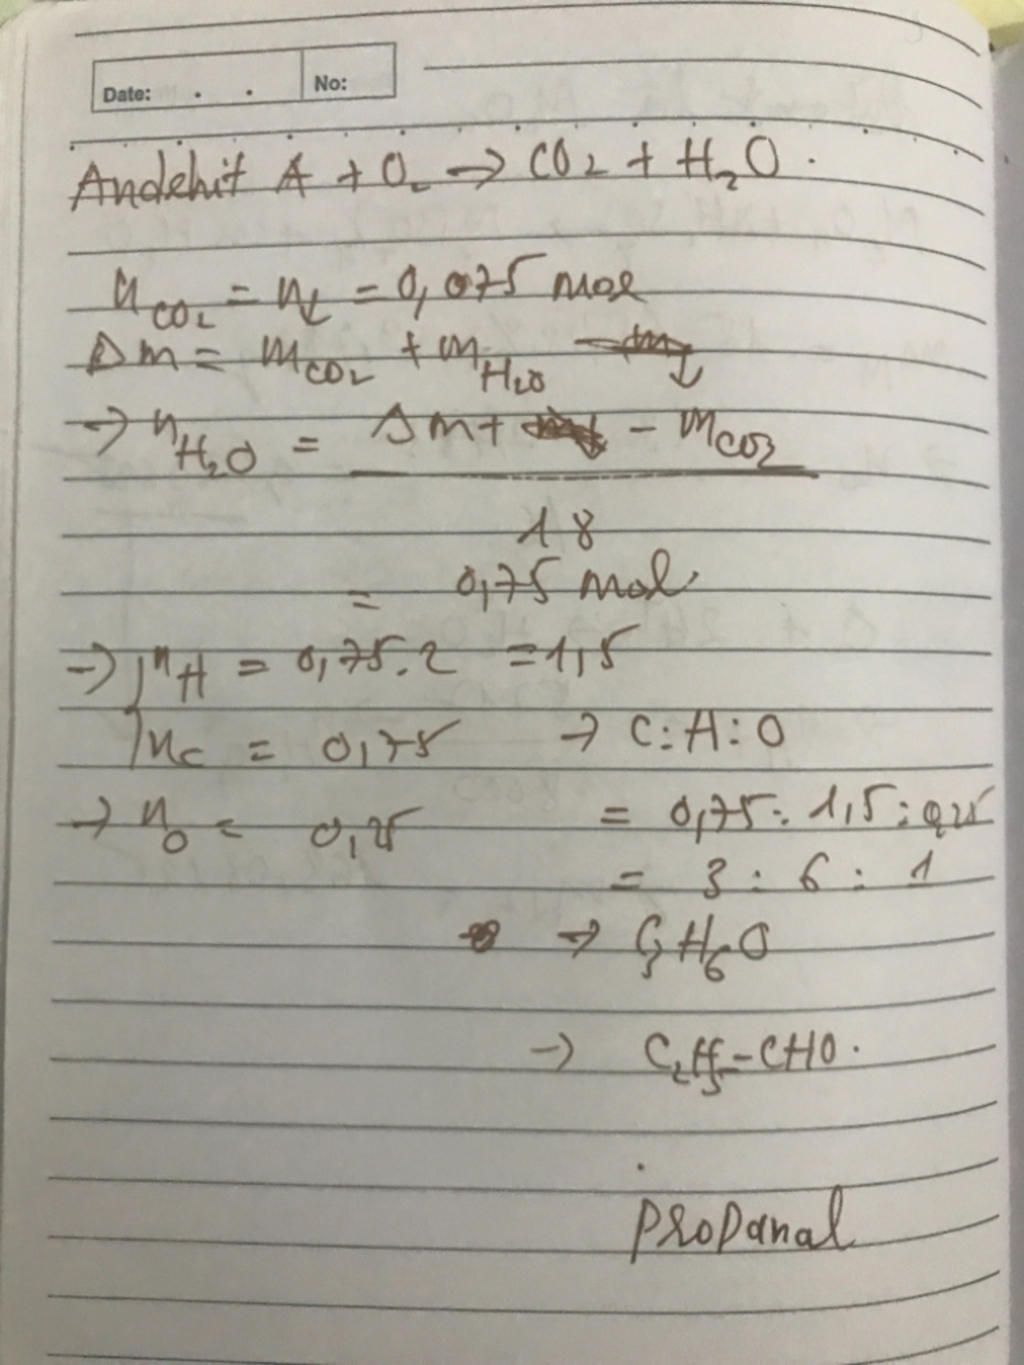 Date: . . No:
Andehit A + O2 → CO2 + H2O.
nCO2 = n↓ = 0,075 mol
Δm = mCO2 + mH2O
→ nH2O = Δm + - mCO2
18
= 0,75 mol
→ nH = 0,75.2 = 1,5
nC = 0,75 → C:H:O
→ nO = 0,25 = 0,75:1,5:0,25
= 3 : 6 : 1
→ C3H6O
→ C2H5-CHO.
propanal